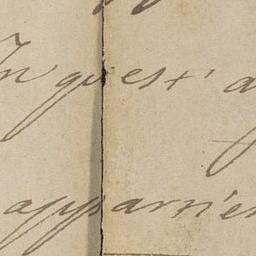 In quest' a
appartien